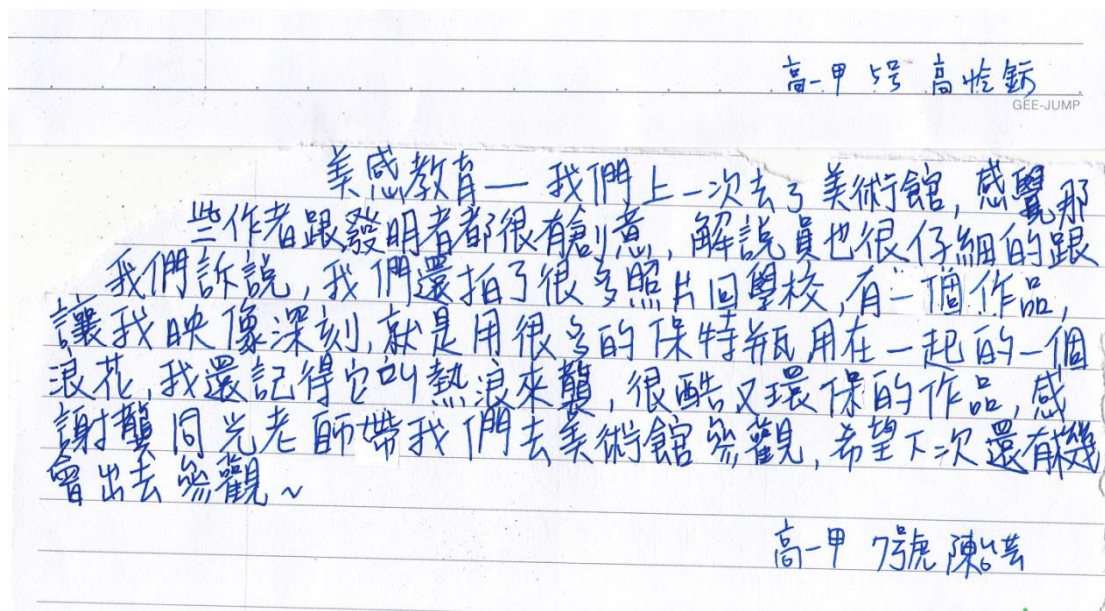 高一甲 5号 高忴鈁
GEE-JUMP
美感教育— 我們上一次去了美術館, 感覺那
些作者跟發明者都很有創意, 解說員也很仔細的跟
我們訴說, 我們還拍了很多照片回學校, 有一個作品,
讓我映像深刻, 就是用很多的保特瓶用在一起的一個
浪花, 我還記得它叫熱浪來襲, 很酷又環保的作品, 感
謝龔同光老師帶我們去美術館參觀, 希望下次還有機
會出去參觀~
高一甲 7號 陳